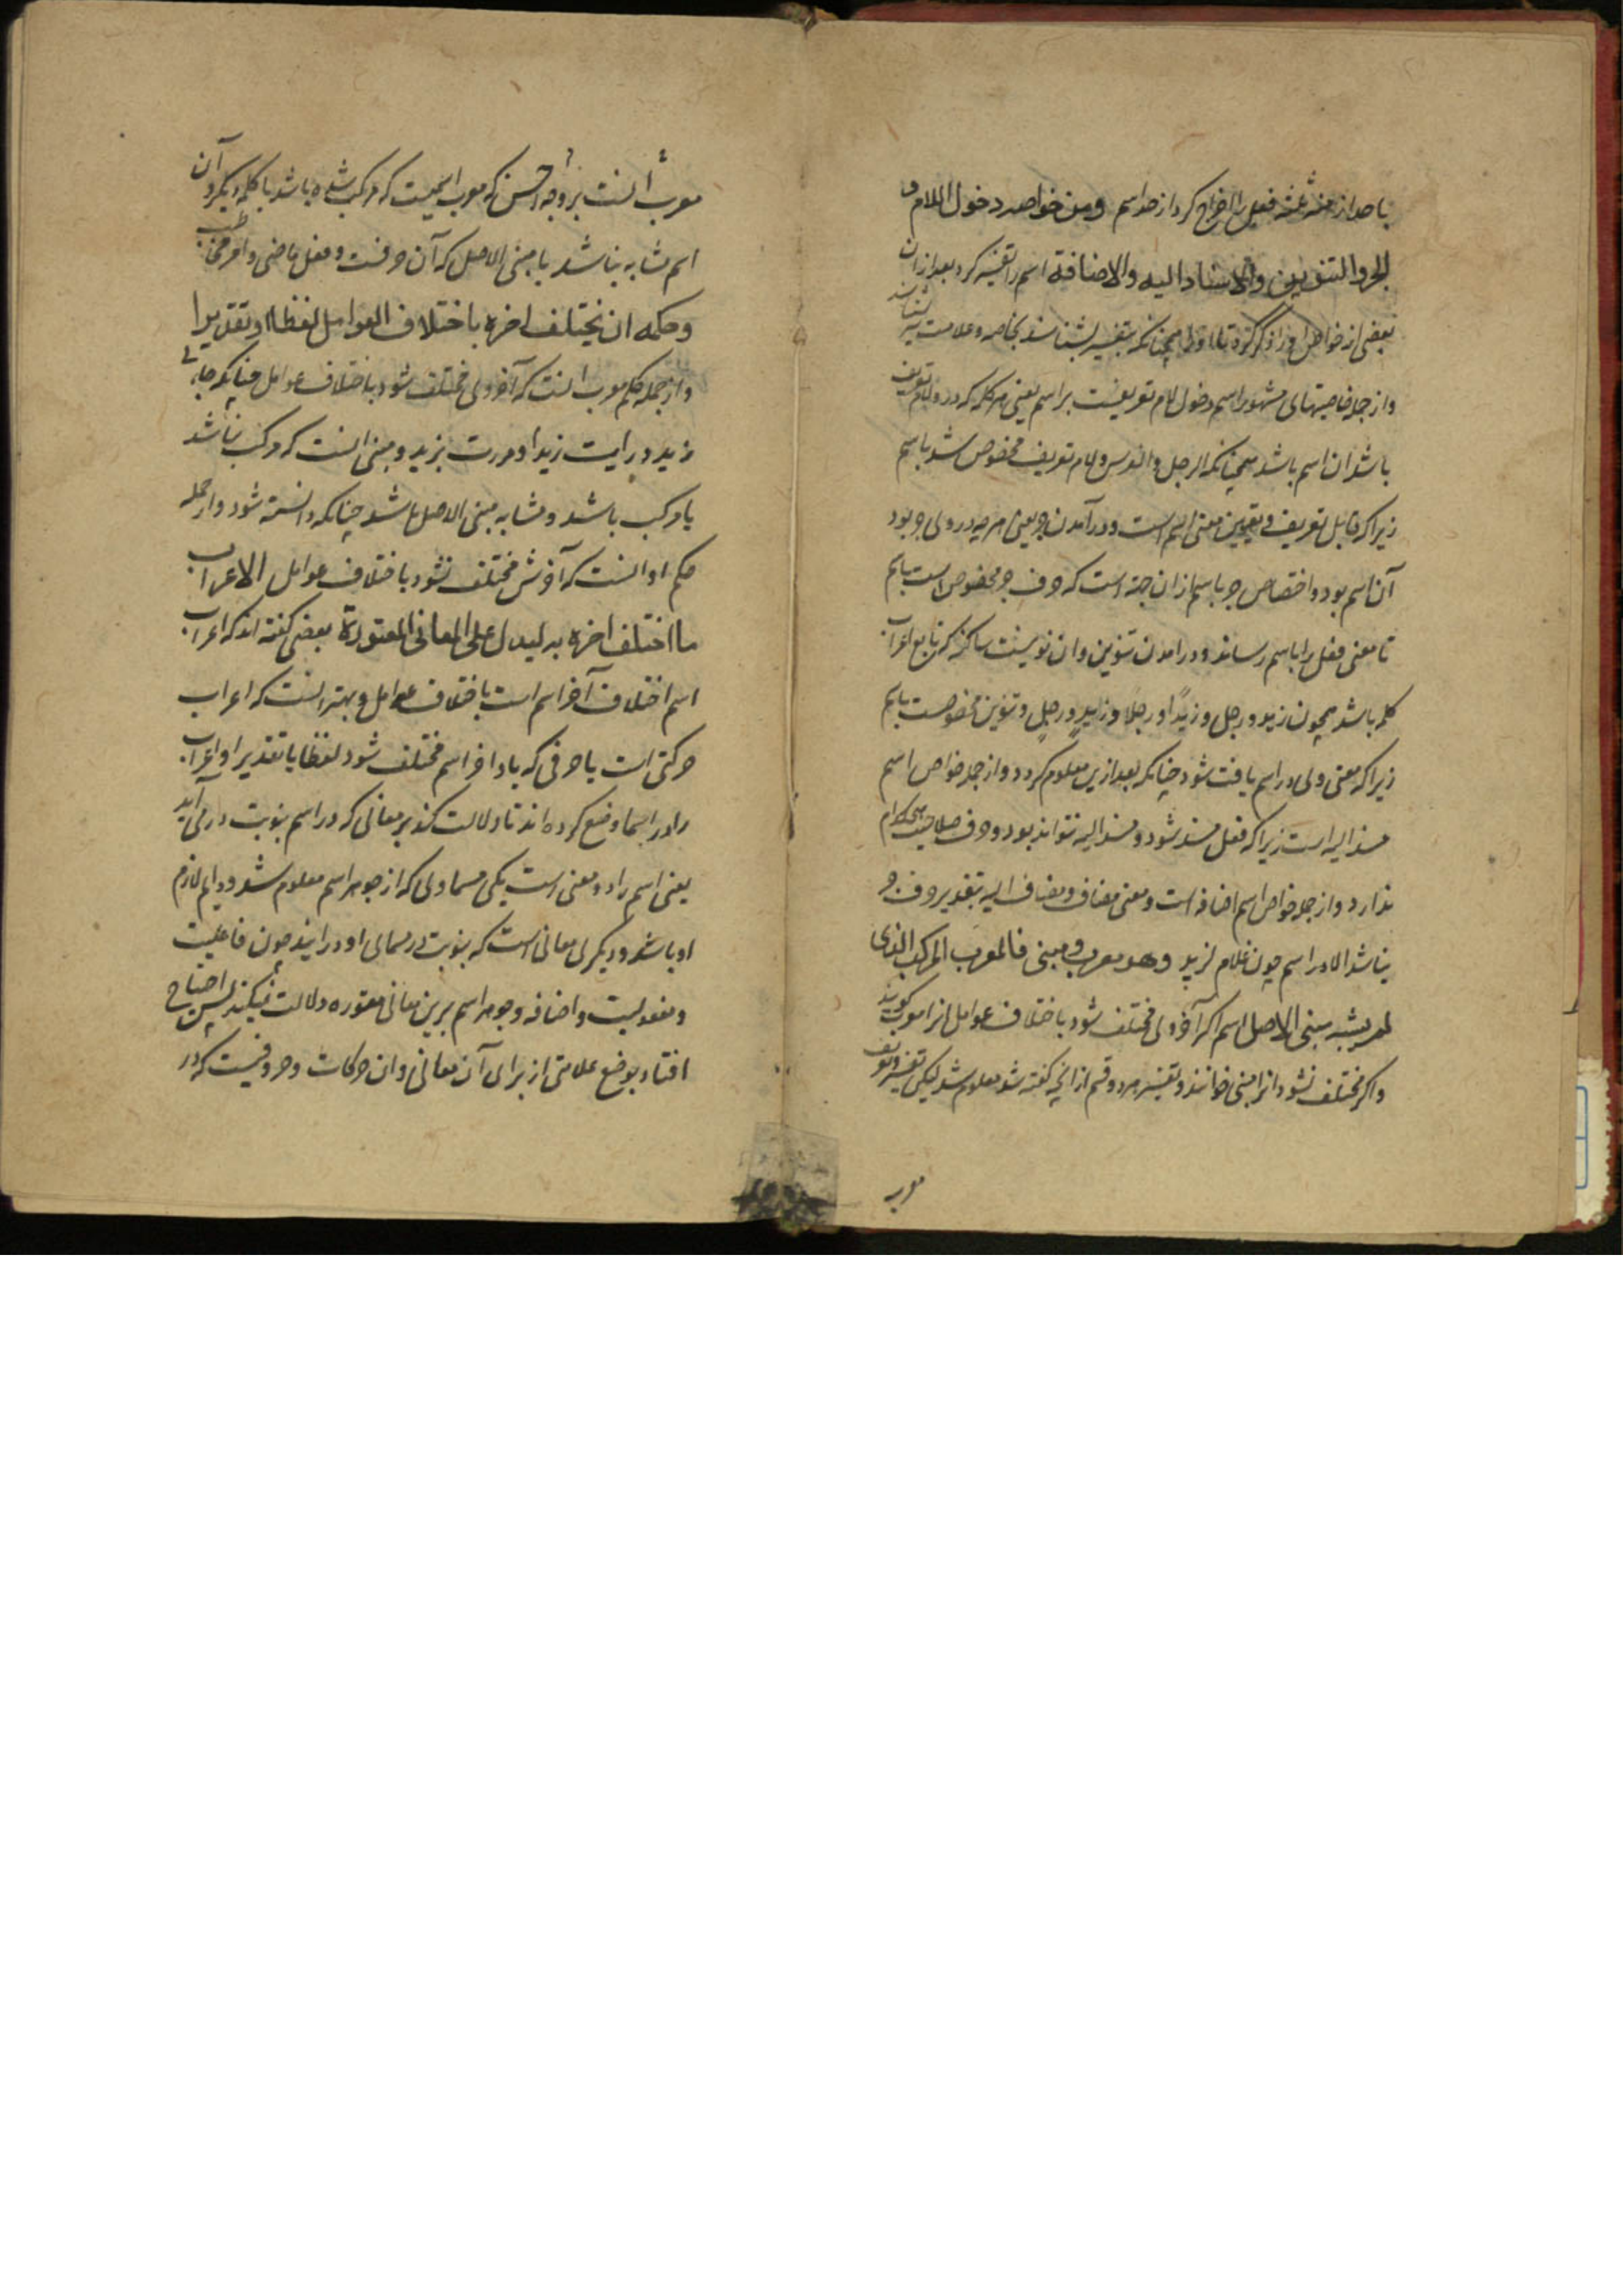 باحد ازمنهٔ ثلثه فعل را اخراج کرد از حد اسم ومن خواصه دخول اللام و
الجر والتنوین والاسناد الیه والاضافة اسم را تفسیر کرد بعد ازان
بعضی از خواص او را ذکر کرد تا او را همچنانکه بتفسیر بشناسند بخاصه وعلامت نیز بشناسند
واز جمله خاصیتهای مشهور اسم دخول لام تعریفست بر اسم یعنی هر کلمه که در وی لام تعریف
باشد ان اسم باشد همچنانکه الرجل والفرس ولام تعریف مخصوص شد باسم
زیرا که قابل تعریف وتعیین معنی اسم است ودر آمدن جر یعنی هر چه در وی جر بود
آن اسم بود واختصاص جر باسم ازان جهة است که حرف جر مخصوص است باسم
تا معنی فعل را باسم رساند ودر امدن تنوین وان نونیست ساکن که تابع اعراب
کلمه باشد همچون زید ورجل وزیدًا ورجلًا وزیدٍ ورجلٍ وتنوین مخصوصست باسم
زیرا که معنی وی در اسم یافت شود چنانکه بعد ازین معلوم کردد واز جمله خواص اسم
مسند الیه است زیرا که فعل مسند شود ومسند الیه نتواند بود وحرف صلاحیت هیچکدام
ندارد واز جمله خواص اسم اضافه است ومعنی مضاف ومضاف الیه بتقدیر حرف جر
نباشد الا در اسم چون غلام لزید وهو معرب ومبنی فالمعرب المرکب الذی
لم یشبه مبنی الاصل اسم اکر آخر وی مختلف شود باختلاف عوامل انرا معرب کویند
واکر مختلف نشود انرا مبنی خوانند وتفسیر هر دو قسم از انچه کفته شد معلوم شد لیکن تفسیر وتعریف
معرب
معرب آنست بر وجه احسن که معرب اسمیست که مرکب شده باشد با کلمه دیکر وآن
اسم مشابه نباشد با مبنی الاصل که آن حرفست وفعل ماضی وامر مخاطب
وحکمه ان یختلف اخره باختلاف العوامل لفظا او تقدیرا
واز جمله حکم معرب انست که آخر وی مختلف شود باختلاف عوامل چنانکه جاءنی
زید ورایت زیدا ومررت بزید ومبنی انست که مرکب نباشد
یا مرکب باشد ومشابه مبنی الاصل باشد چنانکه دانسته شود واز جمله
حکم او انست که آخرش مختلف نشود باختلاف عوامل الاعراب
ما اختلف اخره به لیدل علی المعانی المعتورة بعضی کفته اند که اعراب
اسم اختلاف آخر اسم است باختلاف عوامل وبهتر انست که اعراب
حرکتی است یا حرفی که باو اخر اسم مختلف شود لفظا یا تقدیرا واعراب
را در اسما وضع کرده اند تا دلالت کند بر معانی که در اسم بنوبت در می آید
یعنی اسم را دو معنی است یکی مسماوی که از جوهر اسم معلوم شد ودایم لازم
او باشد ودیکری معانی است که بنوبت در مسمای او در ایند چون فاعلیت
ومفعولیت واضافه وجوهر اسم برین معانی معتوره دلالت نمیکند پس احتیاج
افتاد بوضع علامتی از برای آن معانی وان حرکات وحروفیست که در